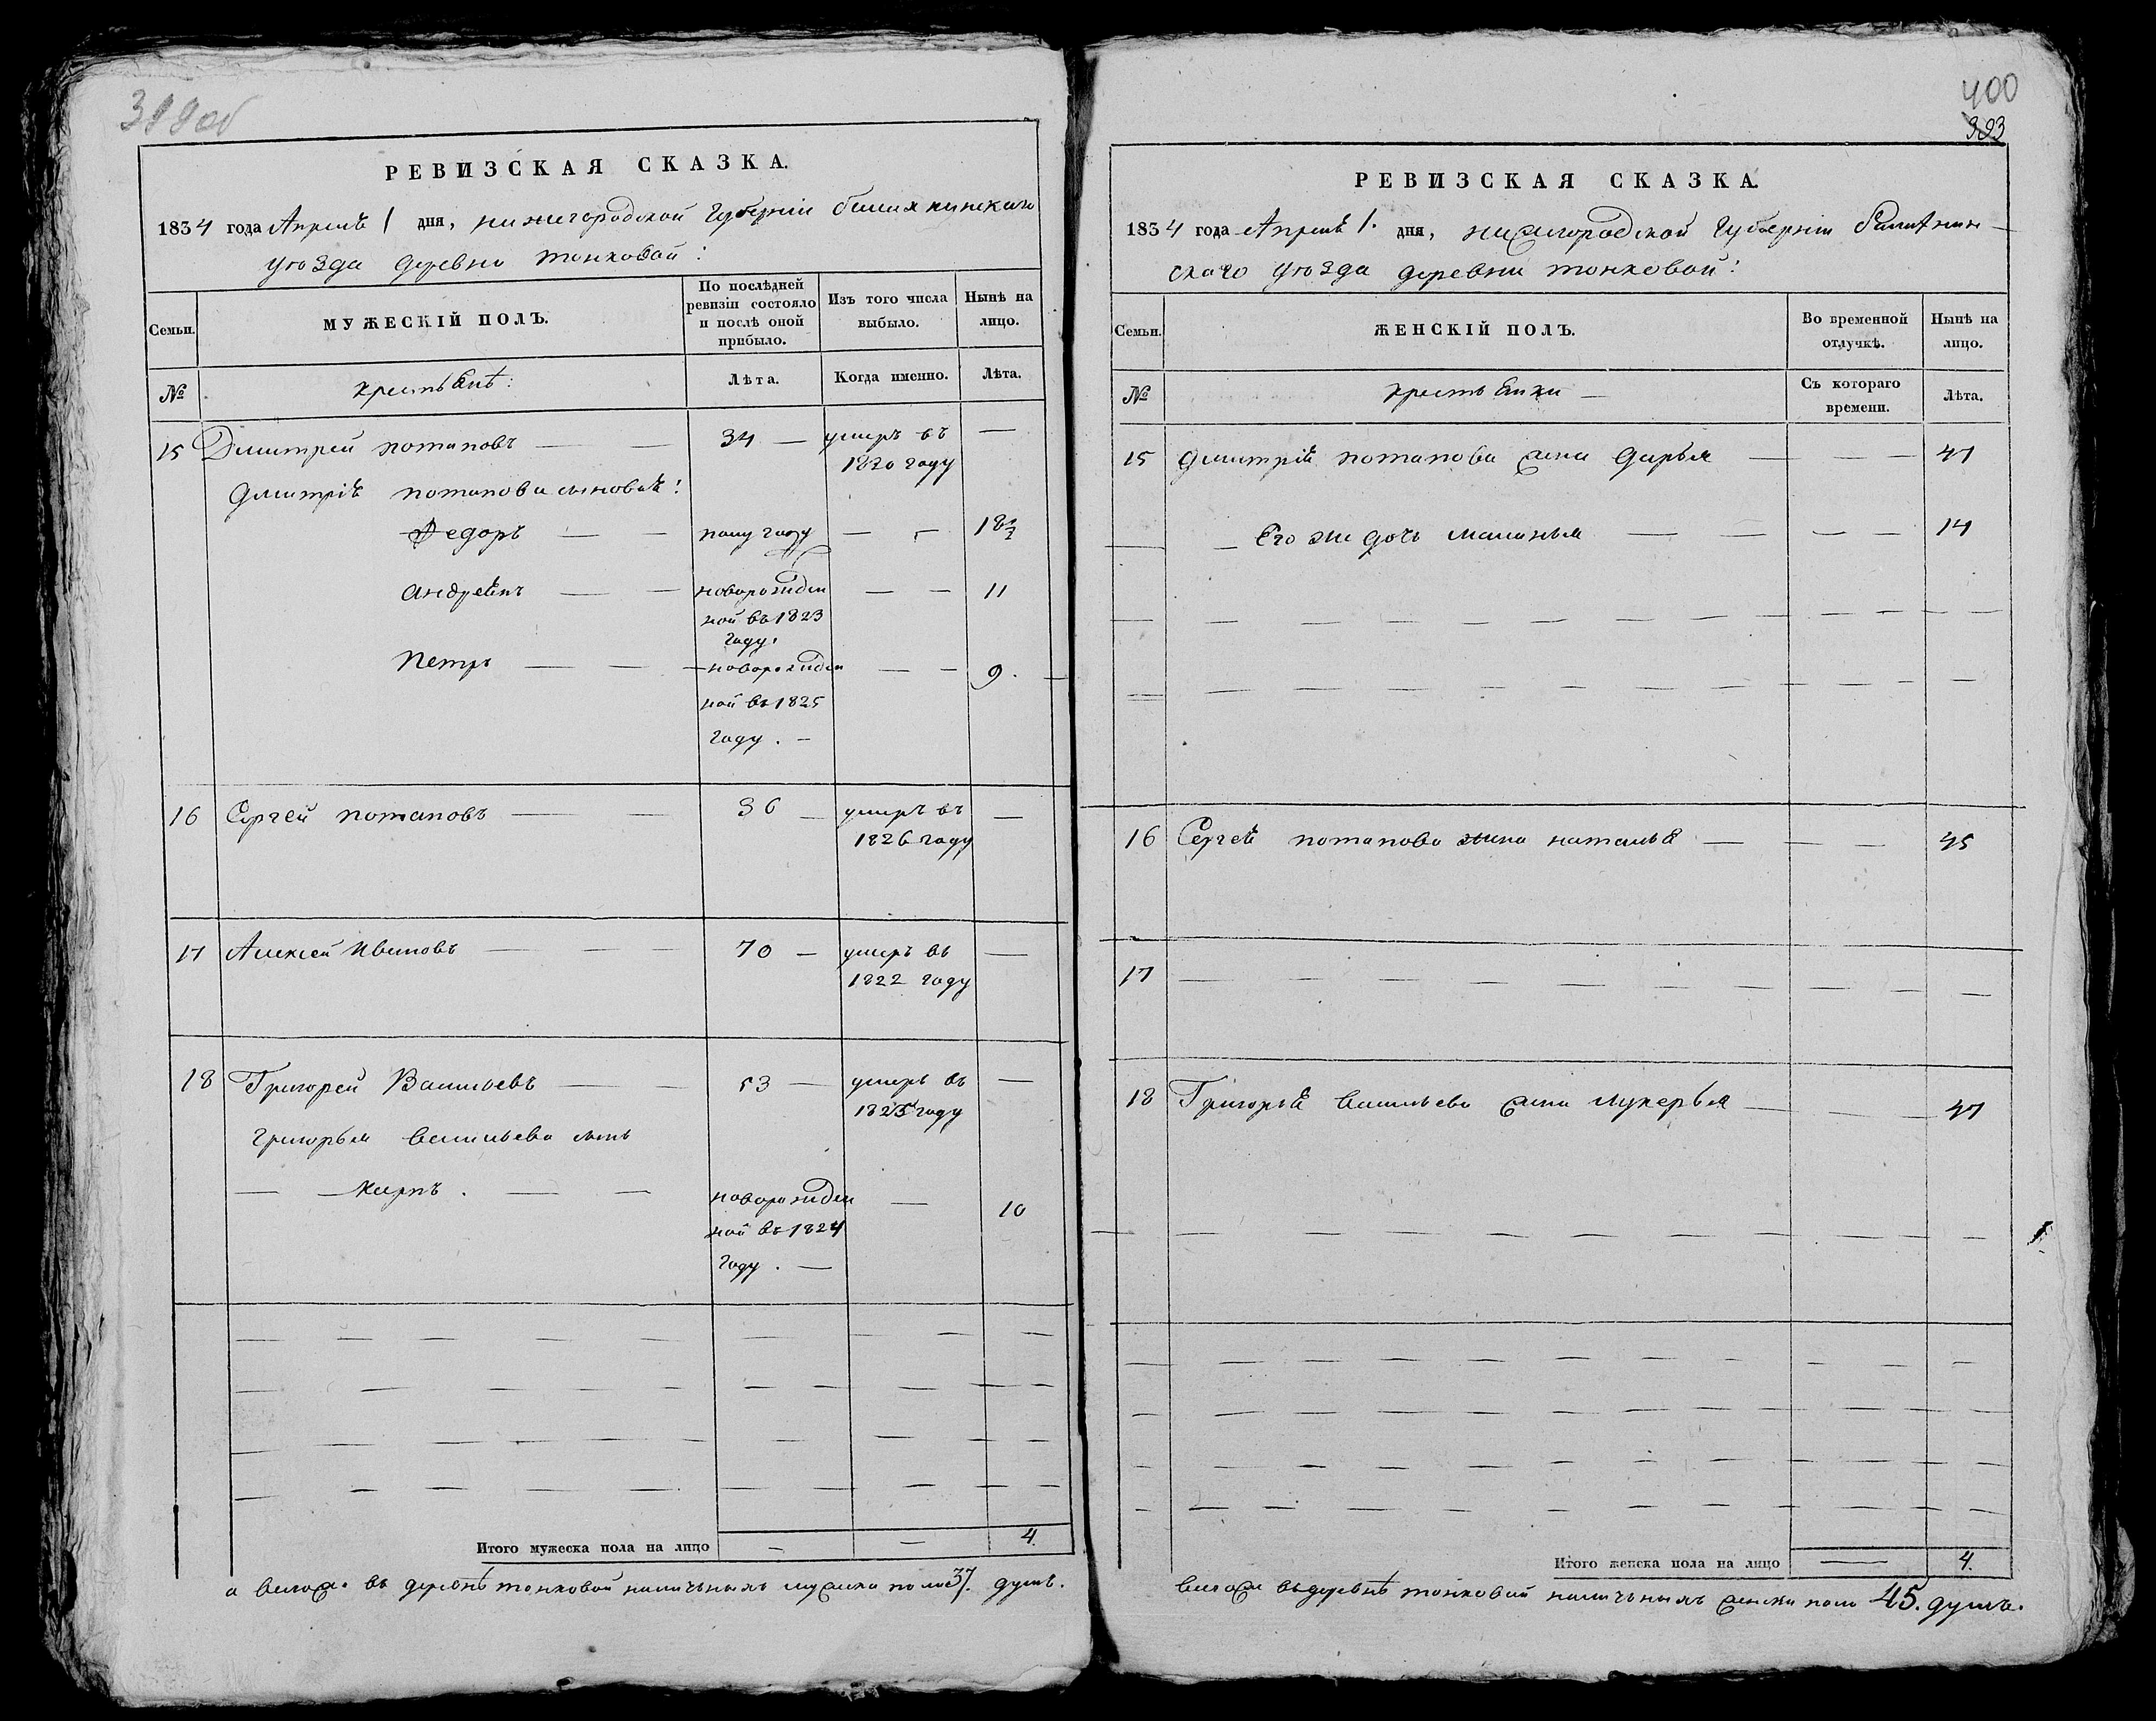 399 об
РЕВИЗСКАЯ СКАЗКА.
1834 года Апреля 1 дня, нижегородской Губернiи балахнинскаго
уезда деревни тонковой:
Семьи.
МУЖЕСКIЙ ПОЛЪ.
По послѣдней ревизiи состояло и послѣ оной прибыло.
Изъ того числа выбыло.
Нынѣ на лицо.
№
крестьяне:
Лѣта.
Когда именно.
Лѣта.
15 Дмитрей потаповъ — — 34 — умеръ въ —
1820 году
дмитрiя потапова сыновья:
Федоръ — — полу году — — 18½
андреянъ — — новорожден — — 11
ной въ 1823
году.
Петръ — — новорожден — — 9.
ной въ 1825
году. —
16 Сергей потаповъ — — 36 — умеръ въ —
1826 году
17 Алексей Ивановъ — — — 70 — умеръ въ —
1822 году
18 Григорей Васильевъ — — 53 — умеръ въ —
1825 году
григорья васильева сынъ
— — Карпъ. — — новорожден — 10
ной въ 1824
году. —
Итого мужеска пола на лицо — — 4.
а всего въ деревнѣ тонковой наличныхъ мужска пола 37. душъ.
400
393
РЕВИЗСКАЯ СКАЗКА.
1834 года Апреля 1. дня, нижегородской Губернiи балахнин
скаго уезда деревни тонковой:
Семьи.
ЖЕНСКIЙ ПОЛЪ.
Во временной отлучкѣ.
Нынѣ на лицо.
№
крестьянки —
Съ котораго времени.
Лѣта.
15 дмитрiя потапова жена дарья — — — 47
— Его же дочь маланья — — — — 14
16 Сергея потапова жена наталья — — — 45
17
18 Григорья васильева жена лукерья — — — 47
Итого женска пола на лицо — 4.
всего въ деревнѣ тонковой наличныхъ женска пола 45. душъ.